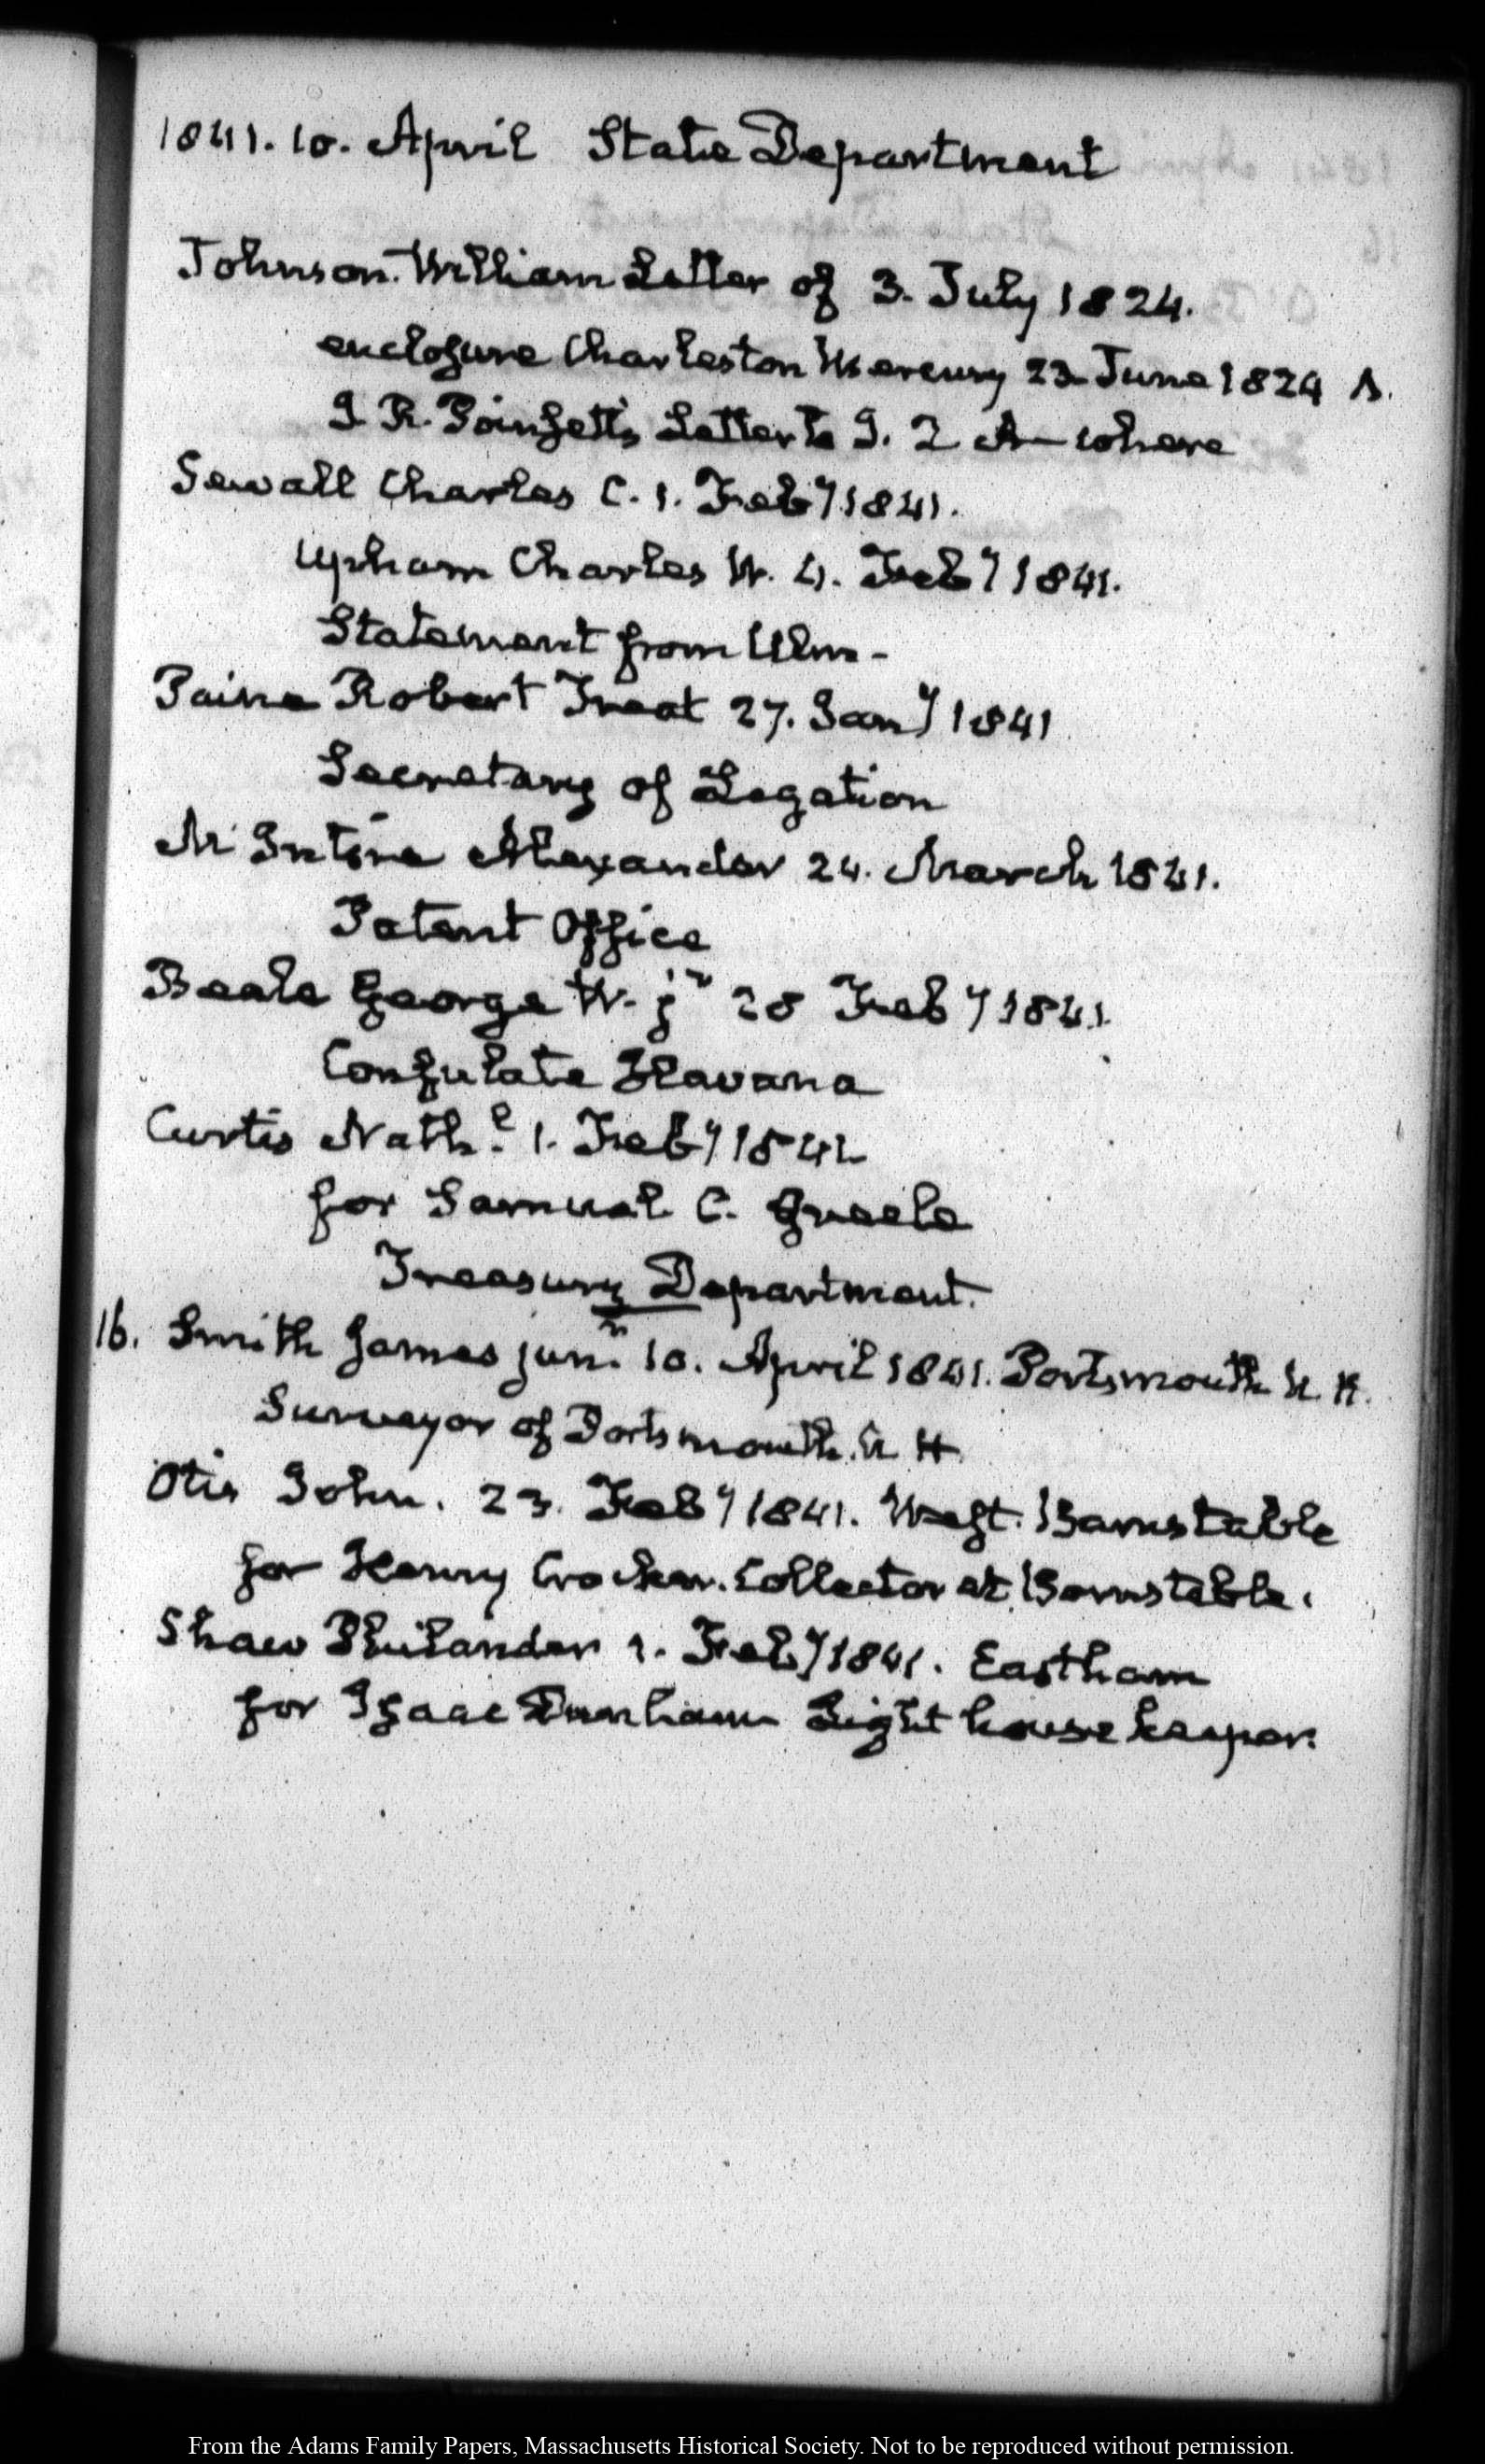 1841. 10. April State Department
Johnson. William Letter of 3. July 1824.
enclosure Charleston Mercury 23. June 1824 A.
J. R. Poinsett's Letter to J. Q A— where
Sewall Charles C. 1. Feby 1841.
Upham Charles W. 4. Feby 1841.
Statement from Ulm-
Paine Robert Treat 27. Jany 1841
Secretary of Legation
McIntire Alexander 24. March 1841.
Patent Office
Beale George W. jr 28 Feby 1841.
Consulate Havana
Curtis Nathl. 1. Feby 1841
for Samuel C. Greele
Treasury Department.
16. Smith James junr. 10. April 1841. Portsmouth N. H.
Surveyor of Portsmouth. N H
Otis John. 23. Feby 1841. West. Barnstable
for Henry Crocker. Collector at Barnstable.
Shaw Philander 1. Feby 1841. Eastham
for Isaac Dunham Light house keeper.
From the Adams Family Papers, Massachusetts Historical Society. Not to be reproduced without permission.